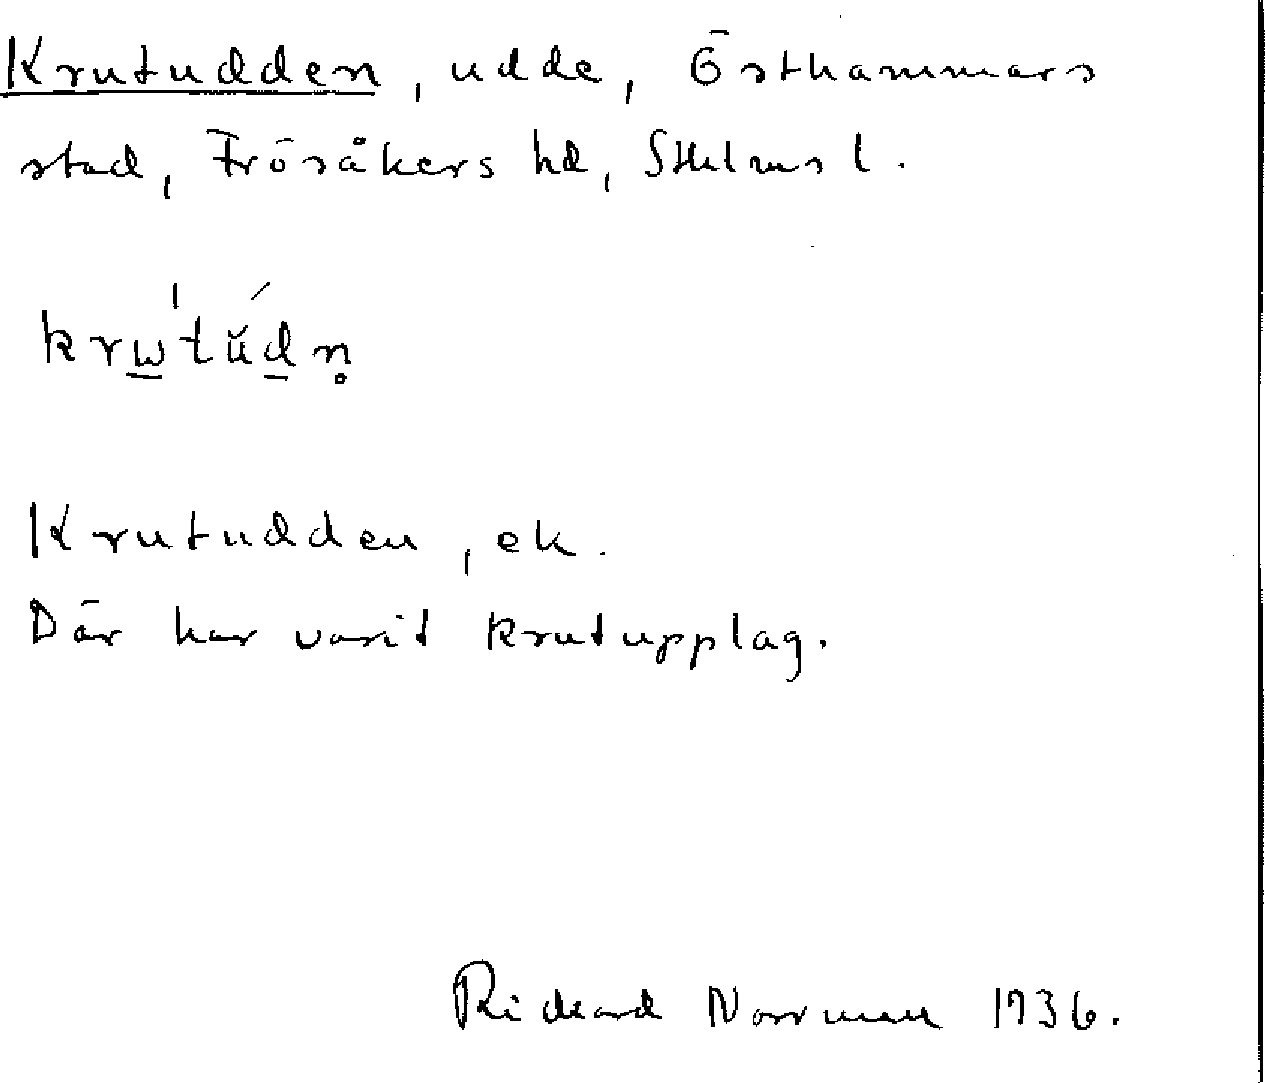 Krutudden, udde, Östhammars
stad, Frösåkers hd, Sthlms l.
krw̲tŭd̲n̥
Krutudden, ek.
Där har varit krutupplag.
Richard Norrman 1936.